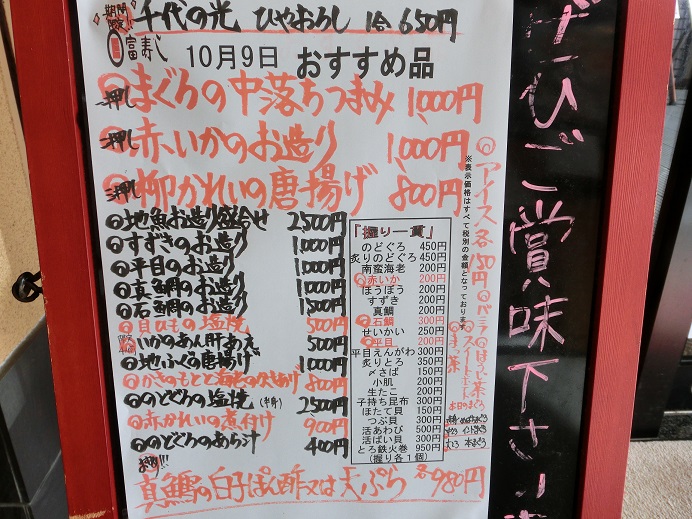 期間限定 千代の光 ひやおろし 1合 650円
富寿し 10月9日 おすすめ品
一押し まぐろの中落ちつまみ 1,000円
二押し 赤いかのお造り 1,000円
三押し 柳かれいの唐揚げ 800円
地魚お造り盛合せ 2,500円
すずきのお造り 1,000円
平目のお造り 1,000円
真鯛のお造り 1,000円
石鯛のお造り 1,500円
貝ひもの塩焼 500円
いかのあん肝あえ 500円
地ふぐの唐揚げ 1,000円
かきのもとと海老のかき揚げ 800円
のどぐろの塩焼(半身) 2,500円
赤かれいの煮付け 900円
のどぐろのあら汁 400円
あります!!
真鱈の白子ぽん酢又は天ぷら 各980円
「握り一貫」
のどぐろ 450円
炙りのどぐろ 450円
南蛮海老 200円
赤いか 200円
ほうぼう 200円
すずき 200円
真鯛 200円
石鯛 300円
せいかい 250円
平目 200円
平目えんがわ 300円
炙りとろ 350円
〆さば 150円
小肌 200円
生たこ 200円
子持ち昆布 300円
ほたて貝 150円
つぶ貝 300円
活あわび 500円
活ばい貝 300円
とろ鉄火巻 950円
(握り各1個)
※表示価格はすべて税別の金額となっております。
アイス各150円
バニラ
ほうじ茶
スイートポテト
まっ茶
本日のまぐろ
赤身
中とろ インドまぐろ
大とろ 本まぐろ
ぜひご賞味下さい